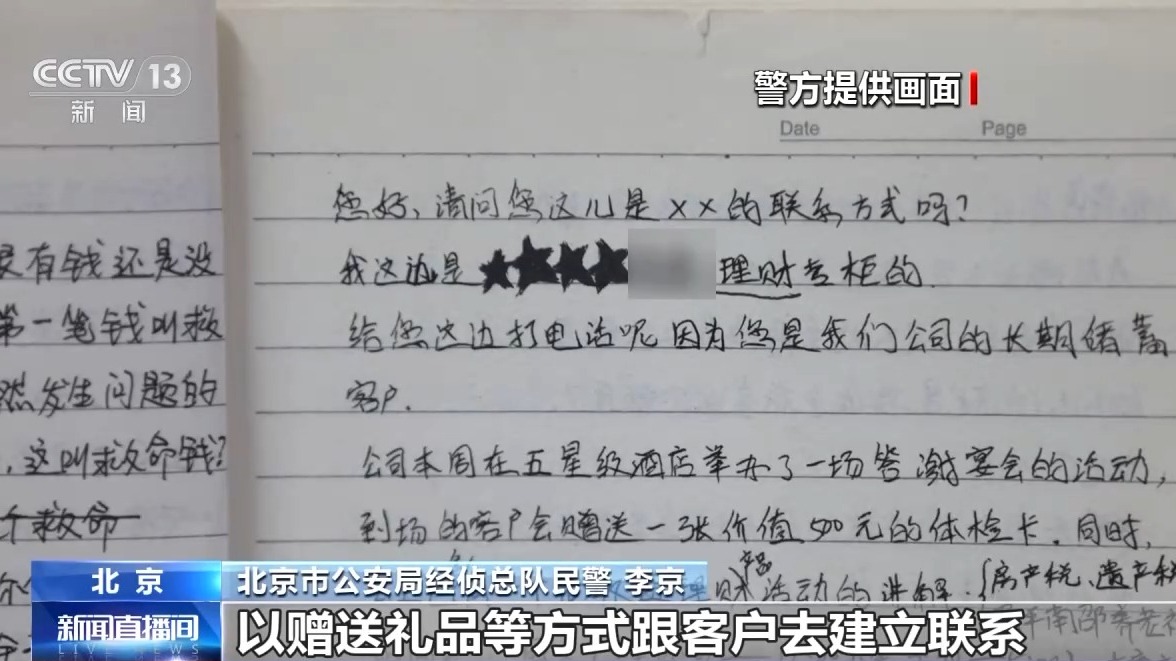 CCTV 13
新闻
警方提供画面
Date Page
您好、请问您这儿是××的联系方式吗?
我这边是 理财专柜的.
给您这边打电话呢因为您是我们公司的长期储蓄
客户.
公司本周在五星级酒店举办了一场答谢宴会的活动,
到场的客户会赠送一张价值500元的体检卡.同时,
财 活动的讲解.(房产税、遗产税
有钱还是没
第一笔钱叫救
然发生问题的
,这叫救命钱?
个救命
北京
北京市公安局经侦总队民警 李京
新闻直播间
LIVE NEWS
以赠送礼品等方式跟客户去建立联系